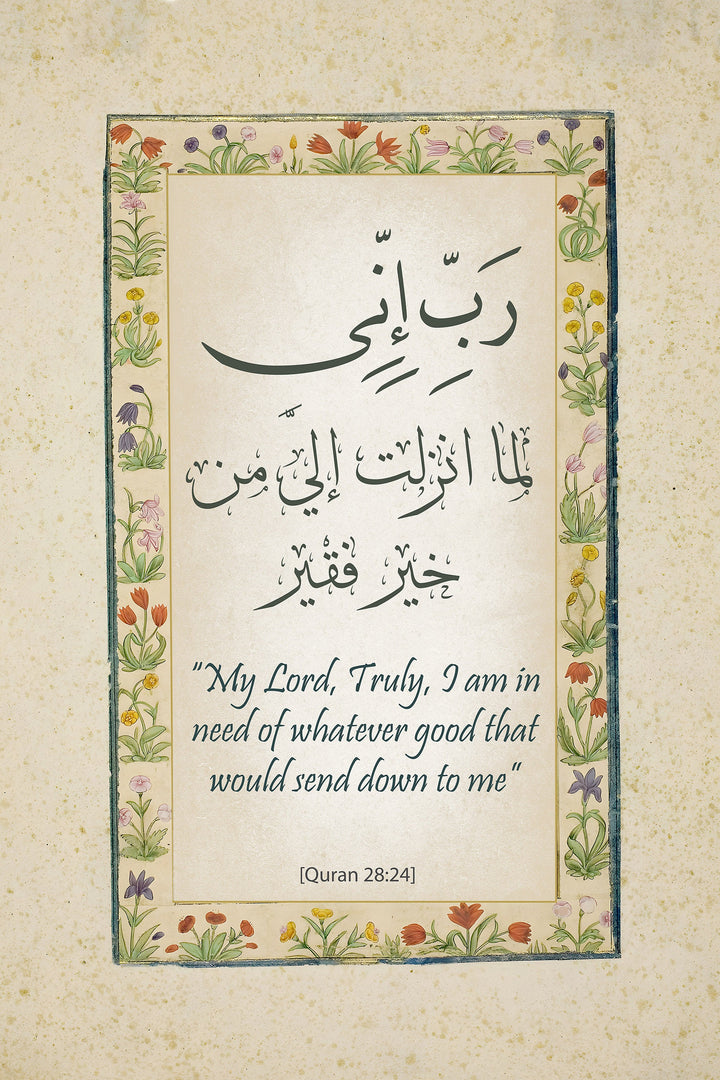 رَبِّ إِنِّى
لما انزلت إليَّ من
خير فقير
"My Lord, Truly, I am in
need of whatever good that
would send down to me"
[Quran 28:24]